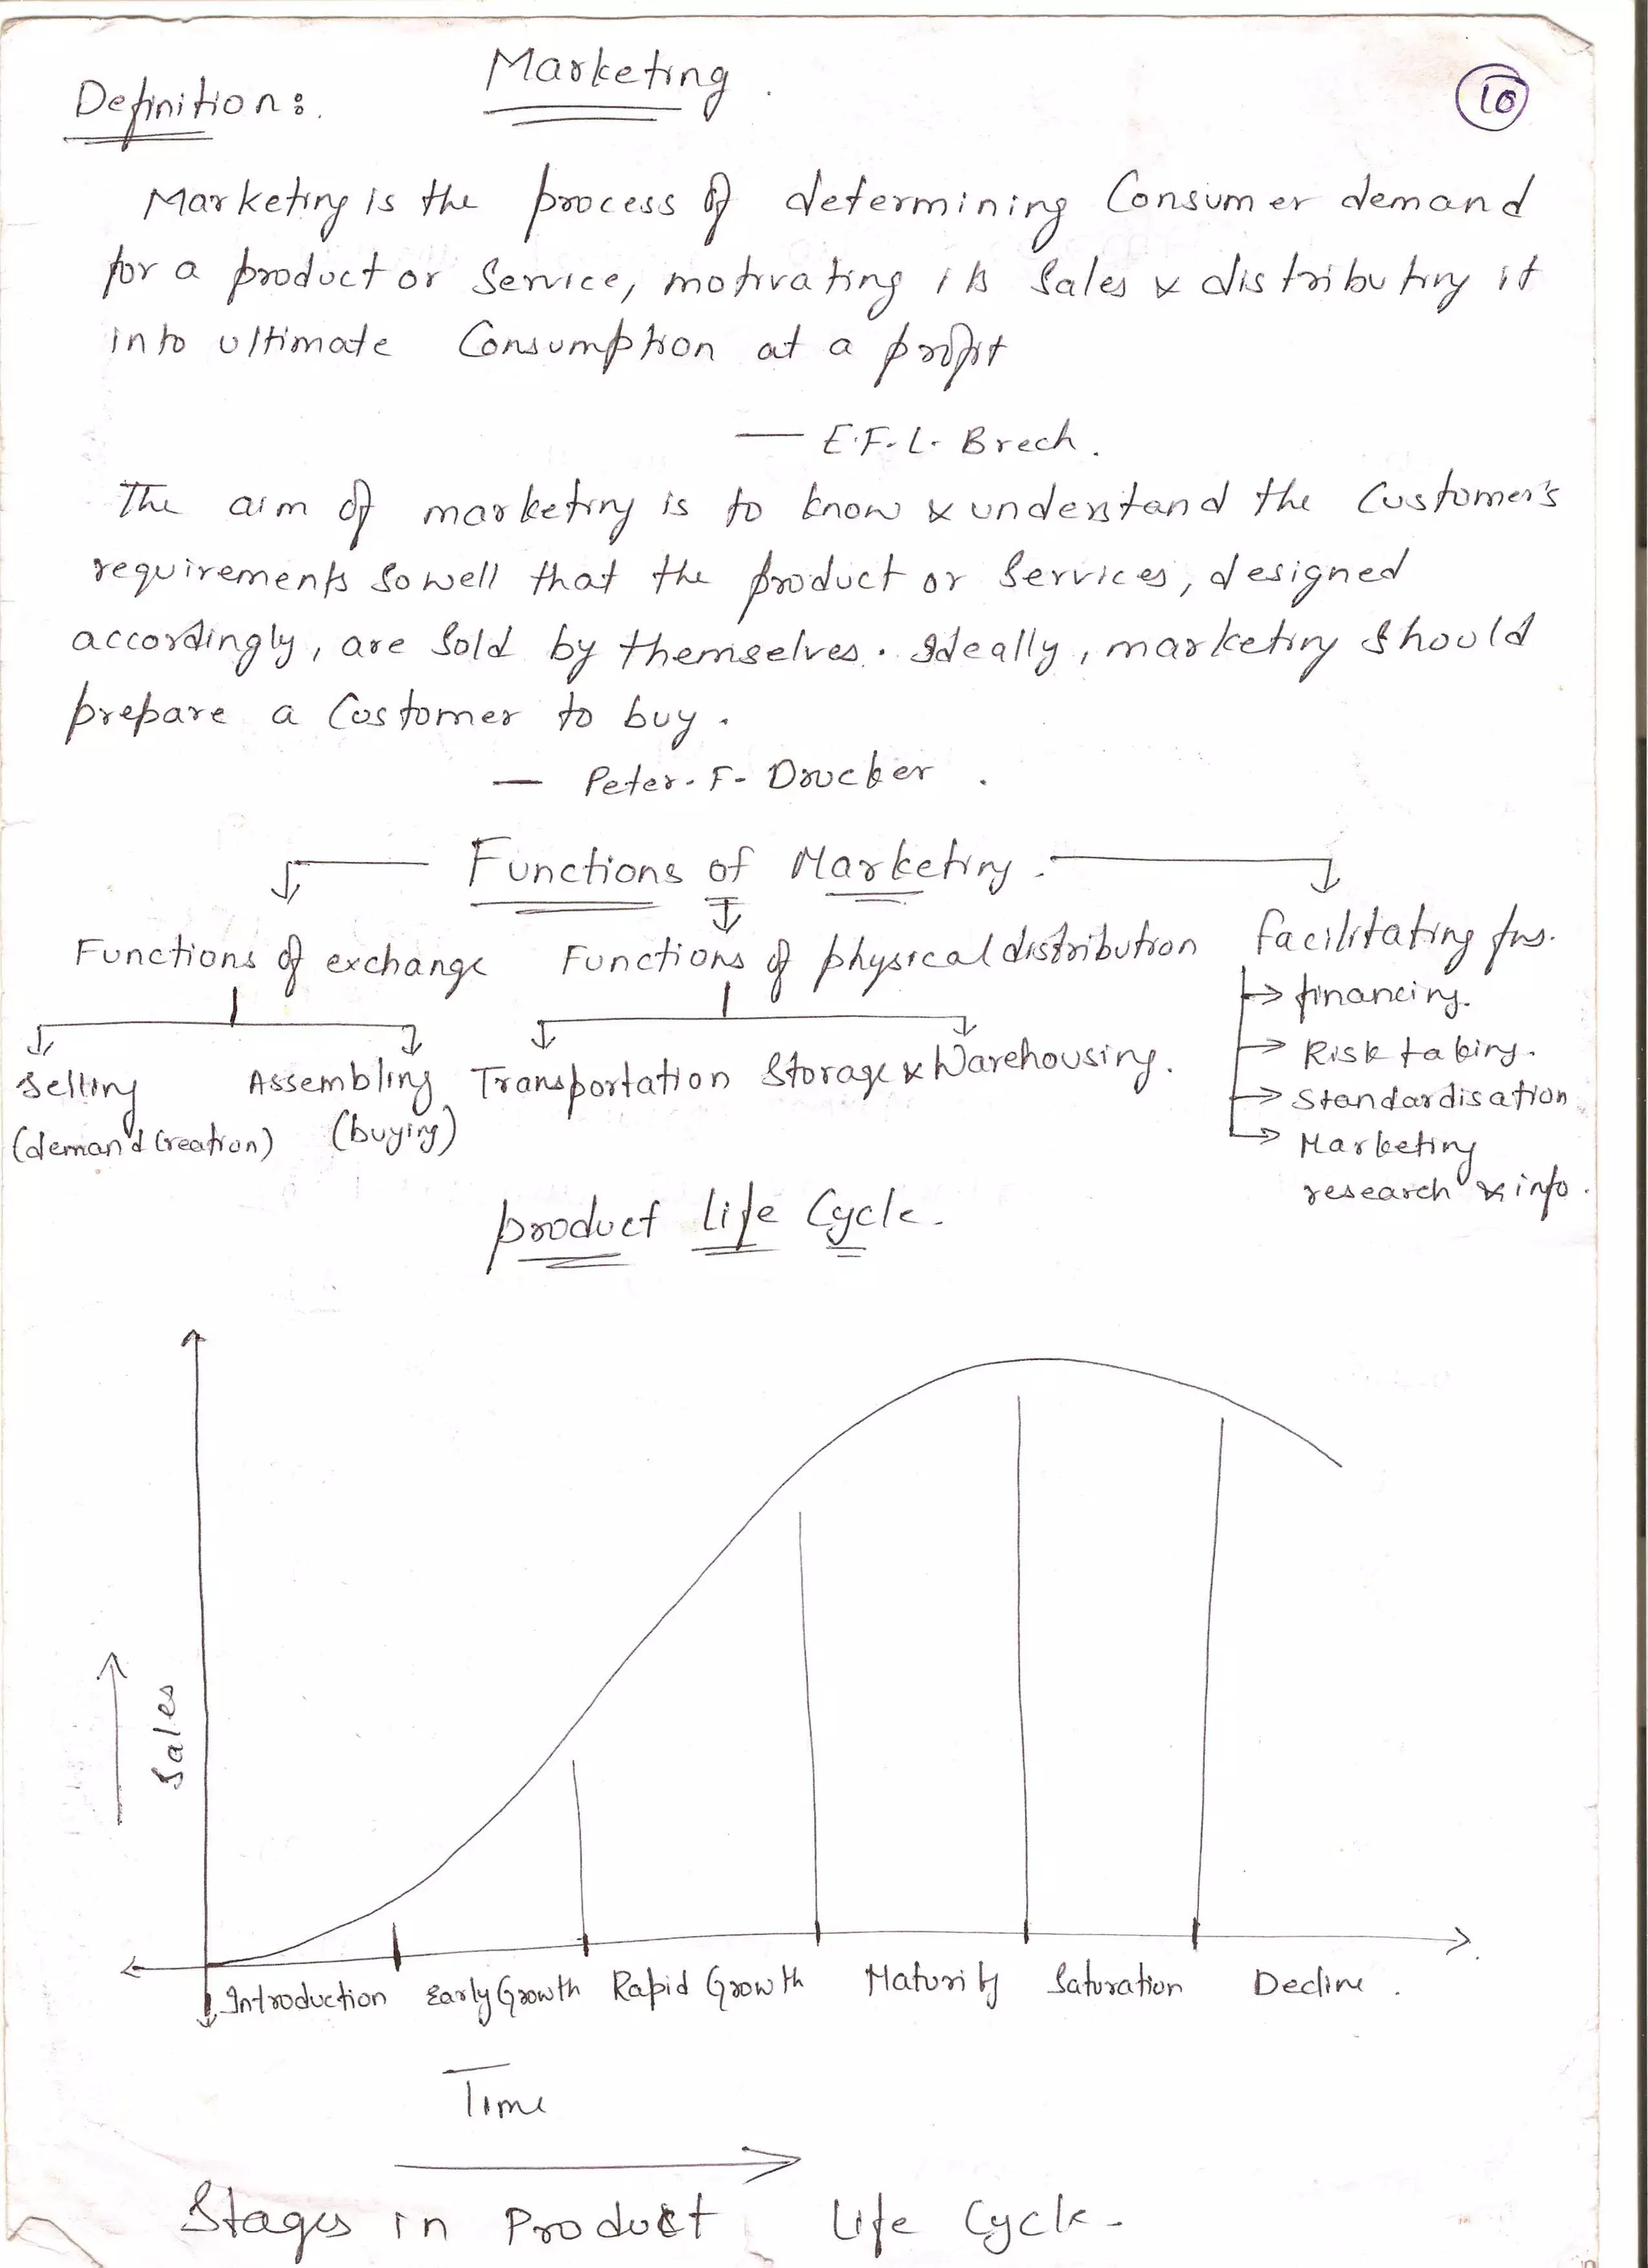 Marketing.
Definition:.
10
Marketing is the process of determining Consumer demand
for a product or Service, motivating its Sales & distributing it
into ultimate Consumption at a profit
— E.F.L. Brech.
The aim of marketing is to know & understand the Customer's
requirements so well that the product or Services, designed
accordingly, are Sold by themselves. Ideally, marketing should
prepare a Customer to buy.
— Peter. F. Drucker.
Functions of Marketing.
Functions of exchange Functions of physical distribution facilitating fns.
Selling Assembling Transportation Storage & Warehousing.
(demand Creation) (buying)
→ financing.
→ Risk taking.
→ Standardisation
→ Marketing
research & info.
product life Cycle.
Sales
Introduction Early Growth Rapid Growth Maturity Saturation Decline.
Time
Stages in Product Life Cycle.